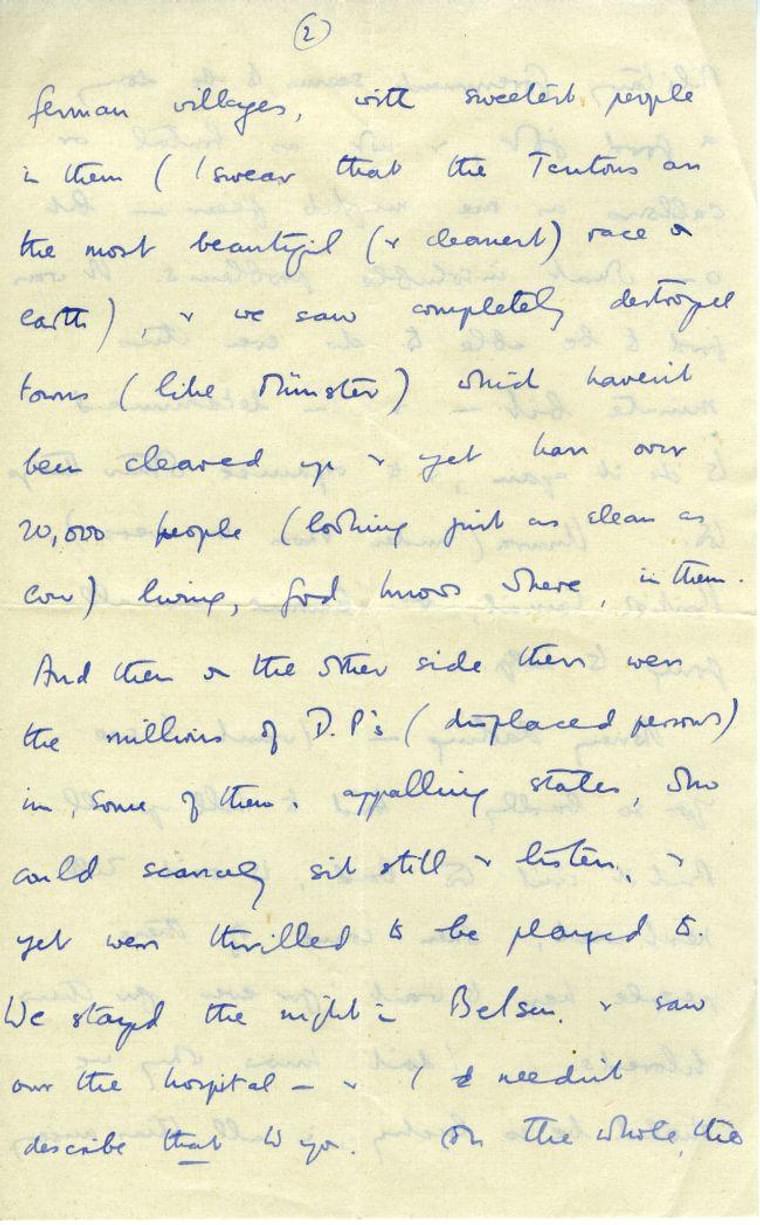 (2)
German villages, with sweetest people
in them (I swear that the Teutons are
the most beautiful (& cleanest) race on
earth), & we saw completely destroyed
towns (like Münster) which haven't
been cleared up & yet have over
20,000 people (looking just as clean as
ever) living, God knows where, in them.
And then on the other side there were
the millions of D.P's (displaced persons)
in, some of them, appalling states, who
could scarcely sit still & listen, &
yet were thrilled to be played to.
We stayed the night in Belsen, & saw
over the hospital — & I needn't
describe that to you. On the whole, the